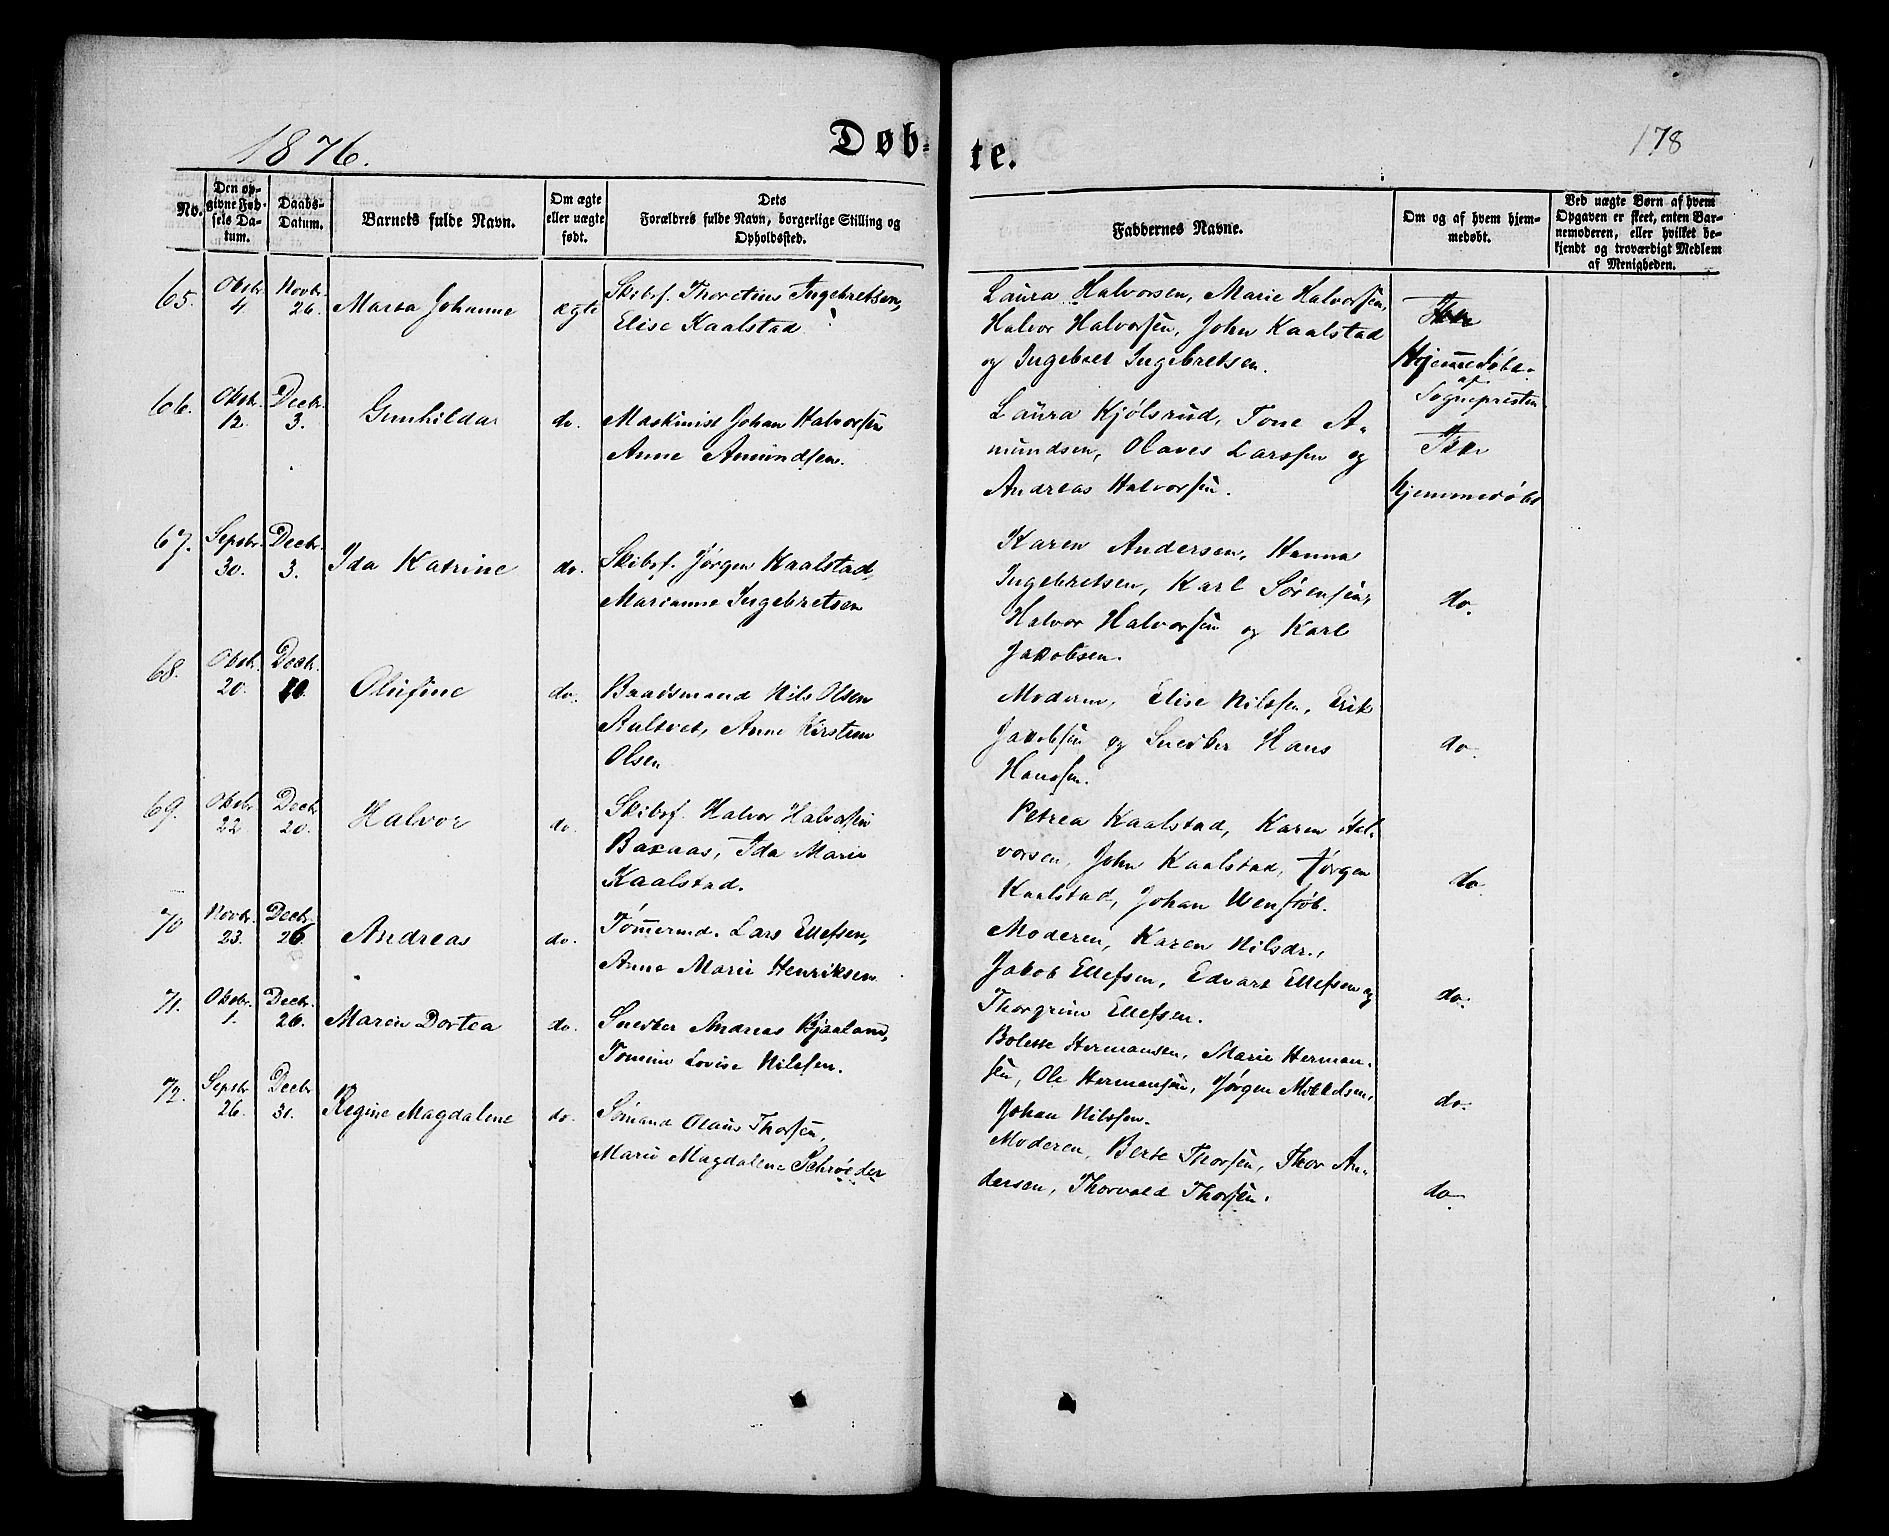 1876.
Døb-
te.
178
No.
Den op-
givne Fød-
sels Da-
tum.
Daabs-
Datum.
Barnets fulde Navn.
Om ægte
eller uægte
født.
Dets
Forældres fulde Navn, borgerlige Stilling og
Opholdssted.
Faddernes Navne.
Om og af hvem hjem-
medøbt.
Ved uægte Børn af hvem
Opgaven er skeet, enten Bar-
nemoderen, eller hvilket be-
kjendt og troværdigt Medlem
af Menigheden.
65.
Oktbr.
4.
Novbr.
26.
Marta Johanne
ægte
Skibsf. Thoretius Ingebretsen,
Elise Kaalstad
Laura Halvorsen, Marie Halvorsen,
Halvor Halvorsen, John Kaalstad
og Ingebret Ingebretsen.
Hjemmedøbt
af
Sognepresten
66.
Oktbr.
12.
Decbr.
3.
Gunhilda
do.
Maskinist Johan Halvorsen
Anne Amundsen.
Laura Kjølsrud, Tone A-
mundsen, Olaves Larssen og
Andreas Halvorsen.
Ikke
hjemmedøbt
67.
Septbr.
30.
Decbr.
3.
Ida Katrine
do.
Skibsf. Jørgen Kaalstad,
Marianne Ingebretsen
Karen Andersen, Hanna
Ingebretsen, Karl Sørensen,
Halvor Halvorsen og Karl
Jakobsen.
do.
68.
Oktbr.
20.
Decbr.
10.
Olufine
do.
Baadsmand Nils Olsen
Aaltvet, Anne Kirstine
Olsen
Moderen, Elise Nilssen, Erik
Jakobsen og Snedker Hans
Hanssen.
do.
69.
Oktbr.
22
Decbr
20.
Halvor
do.
Skibsf. Halvor Halvorsen
Baxaas, Ida Marie
Kaalstad.
Petrea Kaalstad, Karen Hal-
vorsen, John Kaalstad, Jørgen
Kaalstad, Johan Wenstøb.
do.
70
Novbr.
23.
Decbr.
26.
Andreas
do.
Tømmermd. Lars Ellefsen,
Anne Marie Henriksen
Moderen, Karen Nilsdr.,
Jakob Ellefsen, Edvart Ellefsen og
Thorgrim Ellefsen.
do.
71.
Oktbr.
1.
Decbr.
26.
Maren Dortea
do.
Snedker Andreas Kjaaland,
Tomine Lovise Nilssen.
Bolette Hermansen, Marie Herman-
sen, Ole Hermansen, Jørgen Mikkelsen,
Johan Nilssen.
do.
72.
Septbr.
26.
Decbr
31.
Regine Magdalene
do.
Sømand Olaus Thorsen,
Marie Magdalene Schrøeder
Moderen, Berte Thorsen, Thor An-
dersen, Thorvald Thorsen.
do.